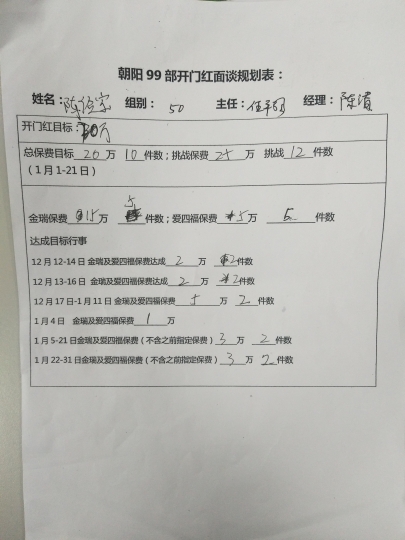 朝阳99部开门红面谈规划表：
姓名： 组别：50 主任： 经理：陈清
开门红目标：20万
总保费目标20万 10件数；挑战保费25万 挑战12件数
（1月1-21日）
金瑞保费15万 5件数；爱四福保费5万 5件数
达成目标行事
12月12-14日金瑞及爱四福保费达成2万 2件数
12月13-16日 金瑞及爱四福保费达成2万 2件数
12月17日-1月11日金瑞及爱四福保费5万 2件数
1月4日 金瑞及爱四福保费1万
1月5-21日金瑞及爱四福保费（不含之前指定保费）3万 2件数
1月22-31日金瑞及爱四福保费（不含之前指定保费）3万 2件数